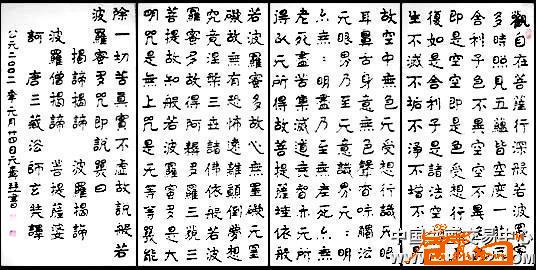 觀自在菩薩行深般若波羅蜜
多時照見五蘊皆空度一
舍利子色不異空空不異色
即是空空即是色受想行識
復如是舍利子是諸法空
生不滅不垢不淨不增不
故空中无色无受想行識无眼
耳鼻舌身意无色聲香味觸法
无眼界乃至无意識界无
亦无明盡乃至无老死亦无
老死盡无苦集滅道无智亦无
得以无所得故菩提薩埵依般
若波羅蜜多故心无罣礙无罣
礙故无有恐怖遠離顛倒夢想
究竟涅槃三世諸佛依般若波
羅蜜多故得阿耨多羅三藐三
菩提故知般若波羅蜜多是大
明咒是无上咒是无等等咒能
除一切苦真實不虛故說般若
波羅蜜多咒即說咒曰
波羅揭諦
波羅僧揭諦 菩提薩婆
訶 唐三藏法師玄奘譯
公元二〇〇一年元月十四日
中国书画交易中心